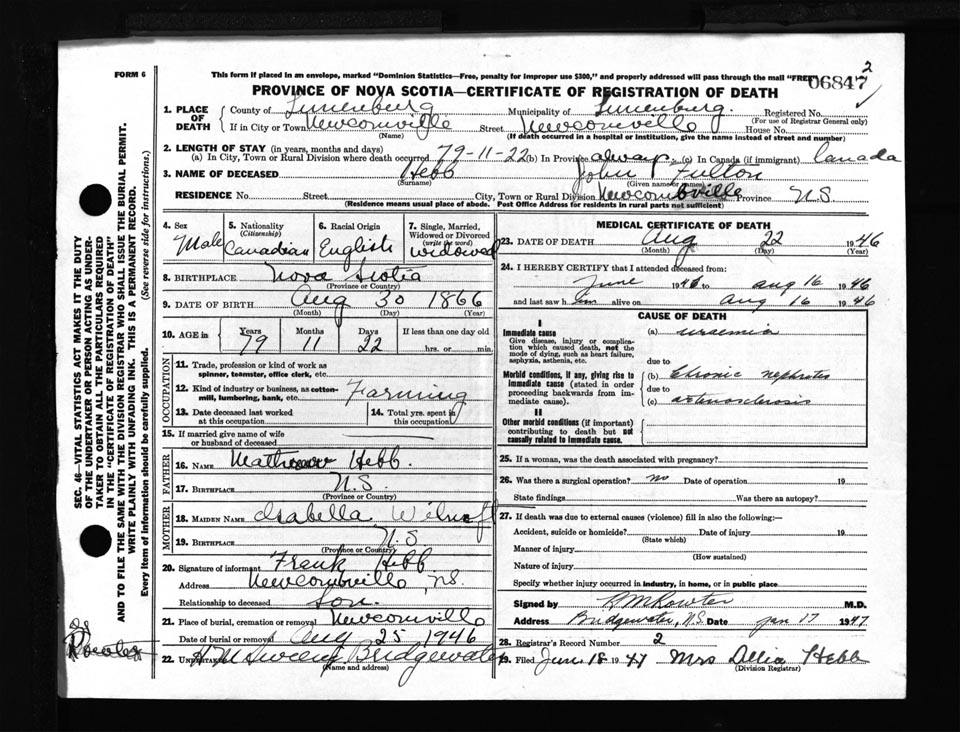 FORM 6
This form if placed in an envelope, marked "Dominion Statistics—Free, penalty for improper use $300," and properly addressed will pass through the mail "FREE"
2
06847
PROVINCE OF NOVA SCOTIA—CERTIFICATE OF REGISTRATION OF DEATH
1. PLACE OF DEATH
County of Lunenburg Municipality of Lunenburg. Registered No.
(For use of Registrar General only)
If in City or Town Newcomville Street Newcomville House No.
(Name) (If death occurred in a hospital or institution, give the name instead of street and number)
2. LENGTH OF STAY (in years, months and days)
(a) In City, Town or Rural Division where death occurred 79-11-22 (b) In Province always (c) In Canada (if immigrant) Canada
3. NAME OF DECEASED Hebb John Fulton
(Surname) (Given name or names)
RESIDENCE No. Street City, Town or Rural Division Newcombville Province N.S.
(Residence means usual place of abode. Post Office Address for residents in rural parts not sufficient)
4. Sex
Male
5. Nationality
(Citizenship)
Canadian
6. Racial Origin
English
7. Single, Married, Widowed or Divorced
(write the word)
Widowed
8. BIRTHPLACE Nova Scotia
(Province or Country)
9. DATE OF BIRTH Aug 30 1866
(Month) (Day) (Year)
10. AGE in
Years Months Days If less than one day old
79 11 22 hrs. or min.
OCCUPATION
11. Trade, profession or kind of work as spinner, teamster, office clerk, etc.
12. Kind of industry or business, as cotton-mill, lumbering, bank, etc. Farming
13. Date deceased last worked at this occupation
14. Total yrs. spent in this occupation
15. If married give name of wife or husband of deceased
FATHER
16. NAME Hebb.
17. BIRTHPLACE N.S.
(Province or Country)
MOTHER
18. MAIDEN NAME Isabella
19. BIRTHPLACE N.S.
(Province or Country)
20. Signature of informant Frank Hebb
Address Newcombville N.S.
Relationship to deceased Son.
21. Place of burial, cremation or removal Newcomville
Date of burial or removal Aug 25 1946
22. UNDERTAKER Sweeny Bridgewater
(Name and address)
MEDICAL CERTIFICATE OF DEATH
23. DATE OF DEATH Aug 22 1946
(Month) (Day) (Year)
24. I HEREBY CERTIFY that I attended deceased from:
June 1946 to Aug 16 1946
and last saw him alive on Aug 16 1946
CAUSE OF DEATH
I
Immediate cause
Give disease, injury or complication which caused death, not the mode of dying, such as heart failure, asphyxia, asthenia, etc.
(a) uraemia
due to
Morbid conditions, if any, giving rise to immediate cause (stated in order proceeding backwards from immediate cause).
(b) Chronic nephrotis
due to
(c) arteriosclerosis
II
Other morbid conditions (if important) contributing to death but not causally related to immediate cause.
25. If a woman, was the death associated with pregnancy?
26. Was there a surgical operation? no Date of operation 19
State findings Was there an autopsy?
27. If death was due to external causes (violence) fill in also the following:—
Accident, suicide or homicide? Date of injury 19
(State which)
Manner of injury
(How sustained)
Nature of injury
Specify whether injury occurred in industry, in home, or in public place
Signed by M.D.
Address Bridgewater, N.S. Date Jan 17 1947
28. Registrar's Record Number 2
29. Filed 18 1947 Mrs Hebb
(Division Registrar)
SEC. 46—VITAL STATISTICS ACT MAKES IT THE DUTY
OF THE UNDERTAKER OR PERSON ACTING AS UNDER-
TAKER TO OBTAIN ALL THE PARTICULARS REQUIRED
IN THE "CERTIFICATE OF REGISTRATION OF DEATH"
AND TO FILE THE SAME WITH THE DIVISION REGISTRAR WHO SHALL ISSUE THE BURIAL PERMIT.
WRITE PLAINLY WITH UNFADING INK. THIS IS A PERMANENT RECORD.
Every item of information should be carefully supplied. (See reverse side for instructions.)